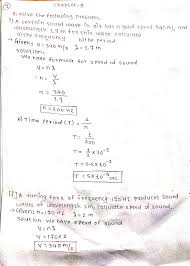 Chapter-8
Solve the following problems.
1) A certain sound wave in air has a speed 340 m/s and
wavelength 1.7 m for this wave calculate
a) the frequency b) the period
→ Given: v = 340 m/s λ = 1.7 m
Solution:
We have formula for speed of sound
v = nλ
n = v/λ
n = 340/1.7
n = 200 Hz
b) Time period (T) = 1/n
T = 1/200
T = 1/2 × 10⁻²
T = 0.5 × 10⁻²
T = 5 × 10⁻³ sec
17] A tuning fork of frequency 170 Hz produces sound
waves of wavelength 2 m, calculate speed of sound.
→ Given: n = 170 Hz λ = 2 m
Solution: we have speed of sound
v = nλ
v = 170 × 2
v = 340 m/s